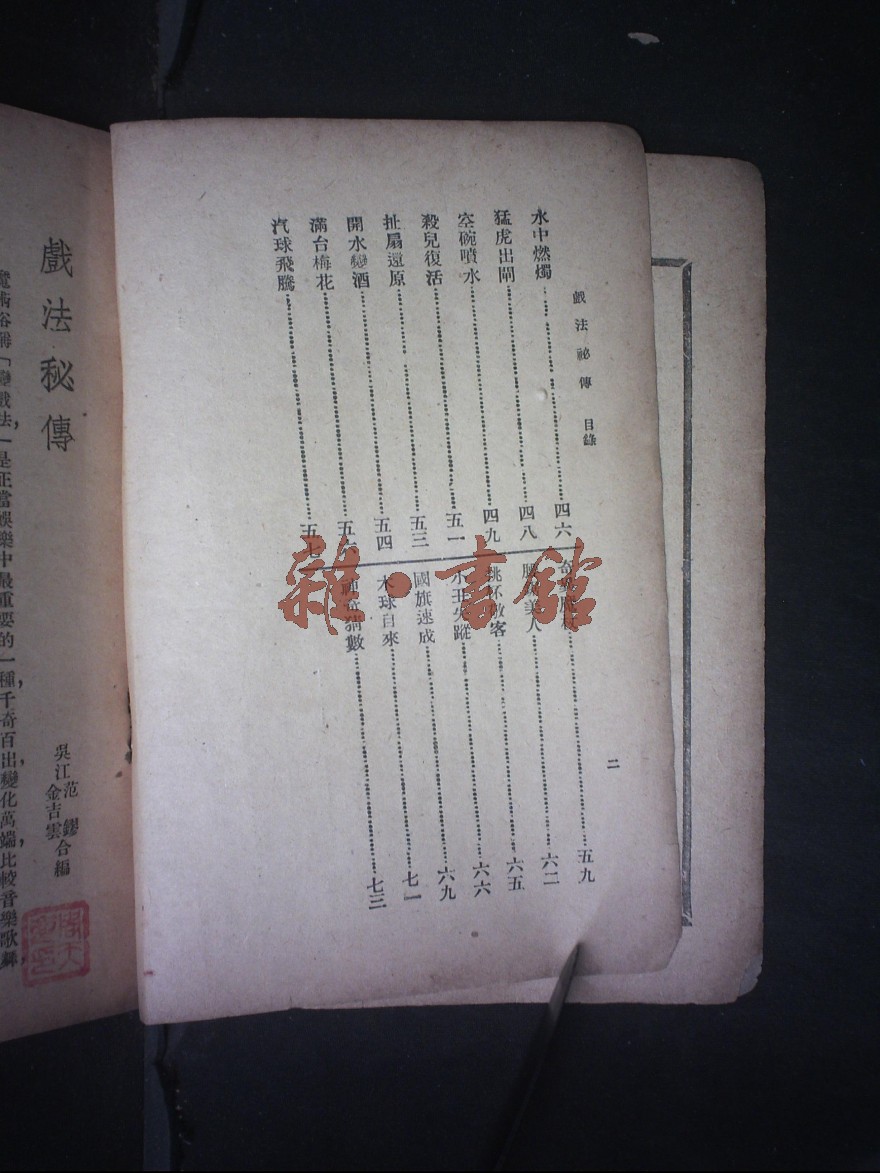 戲法祕傳　目錄
二
水中燃燭…………四六
猛虎出閘…………四八
空碗噴水…………四九
殺兒復活…………五一
扯扇還原…………五三
開水變酒…………五四
滿台梅花…………五
汽球飛騰…………五七
五九
美人…………六二
客…………六五
六六
國旗速成…………六九
木球自來…………七一
猜數…………七三
戲法秘傳
吳江范鏐金吉雲合編
魔術俗稱「變戲法」是正當娛樂中最重要的一種，千奇百出，變化萬端，比較音樂歌舞，
雜·書館